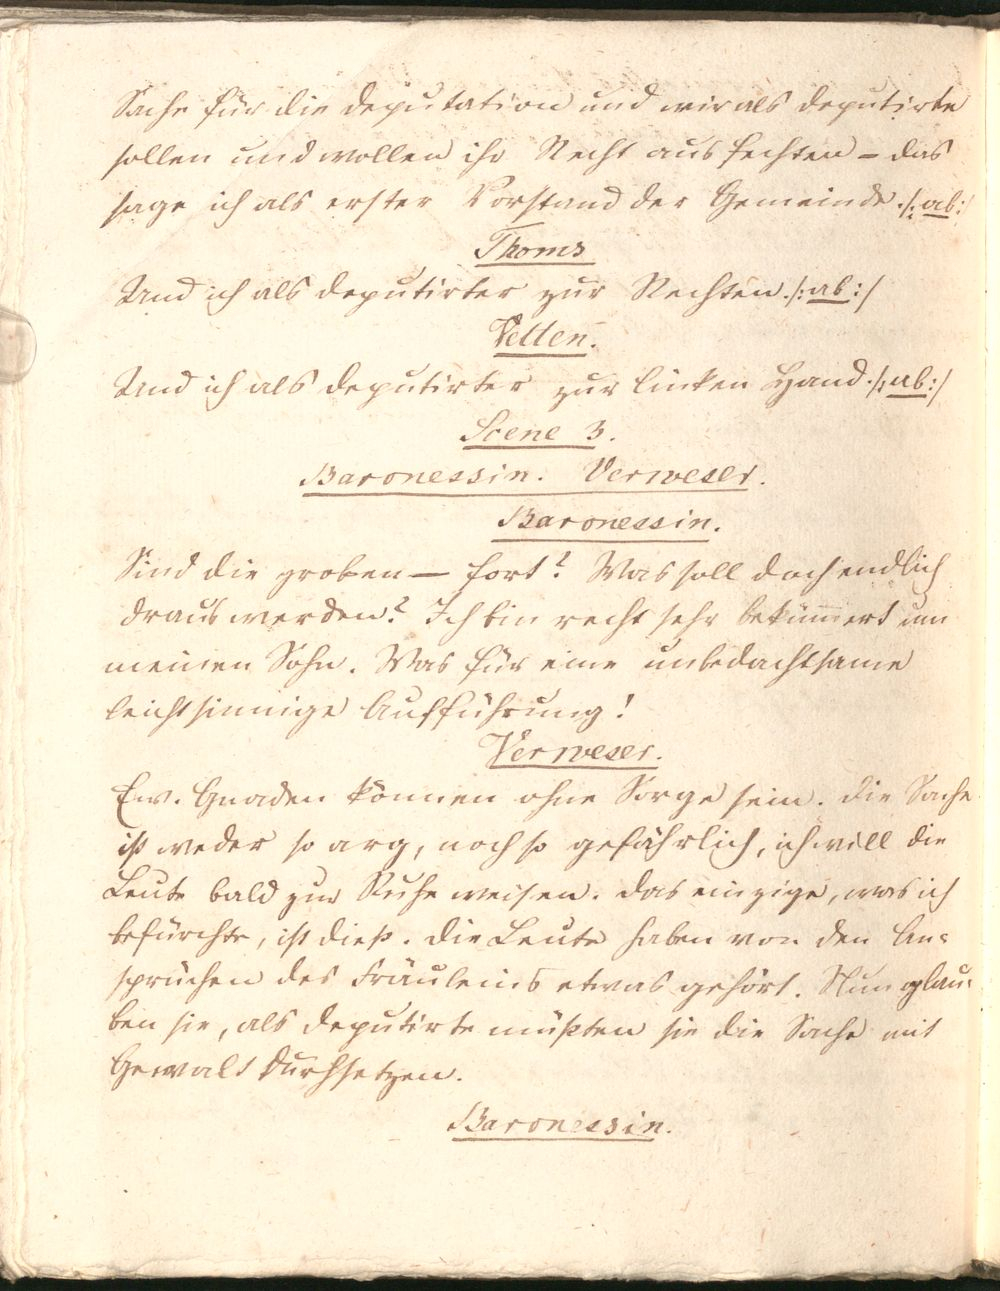 Sache für die Deputation und wir als Deputirte
sollen und wollen ihr Recht ausfechten – das
sage ich als erster Vorstand der Gemeinde. /: ab :/
Thoms
Und ich als Deputirter zur Rechten. /: ab :/
Velten.
Und ich als Deputirter zur linken Hand. /: ab :/
Scene 3.
Baronessin. Verweser.
Baronessin.
Sind die groben — fort? Was soll doch endlich
draus werden? Ich bin recht sehr bekümmert um
meinen Sohn. Was für eine unbedachtsame
leichtsinnige Aufführung!
Verweser.
Ew. Gnaden können ohne Sorge sein. Die Sache
ist weder so arg, noch so gefährlich, ich will die
Leute bald zur Ruhe weisen. Das einzige, was ich
befürchte, ist dieß. Die Leute haben von den An-
sprüchen des Fräuleins etwas gehört. Nun glau-
ben sie, als Deputirte müßten sie die Sache mit
Gewalt durchsetzen.
Baronessin.